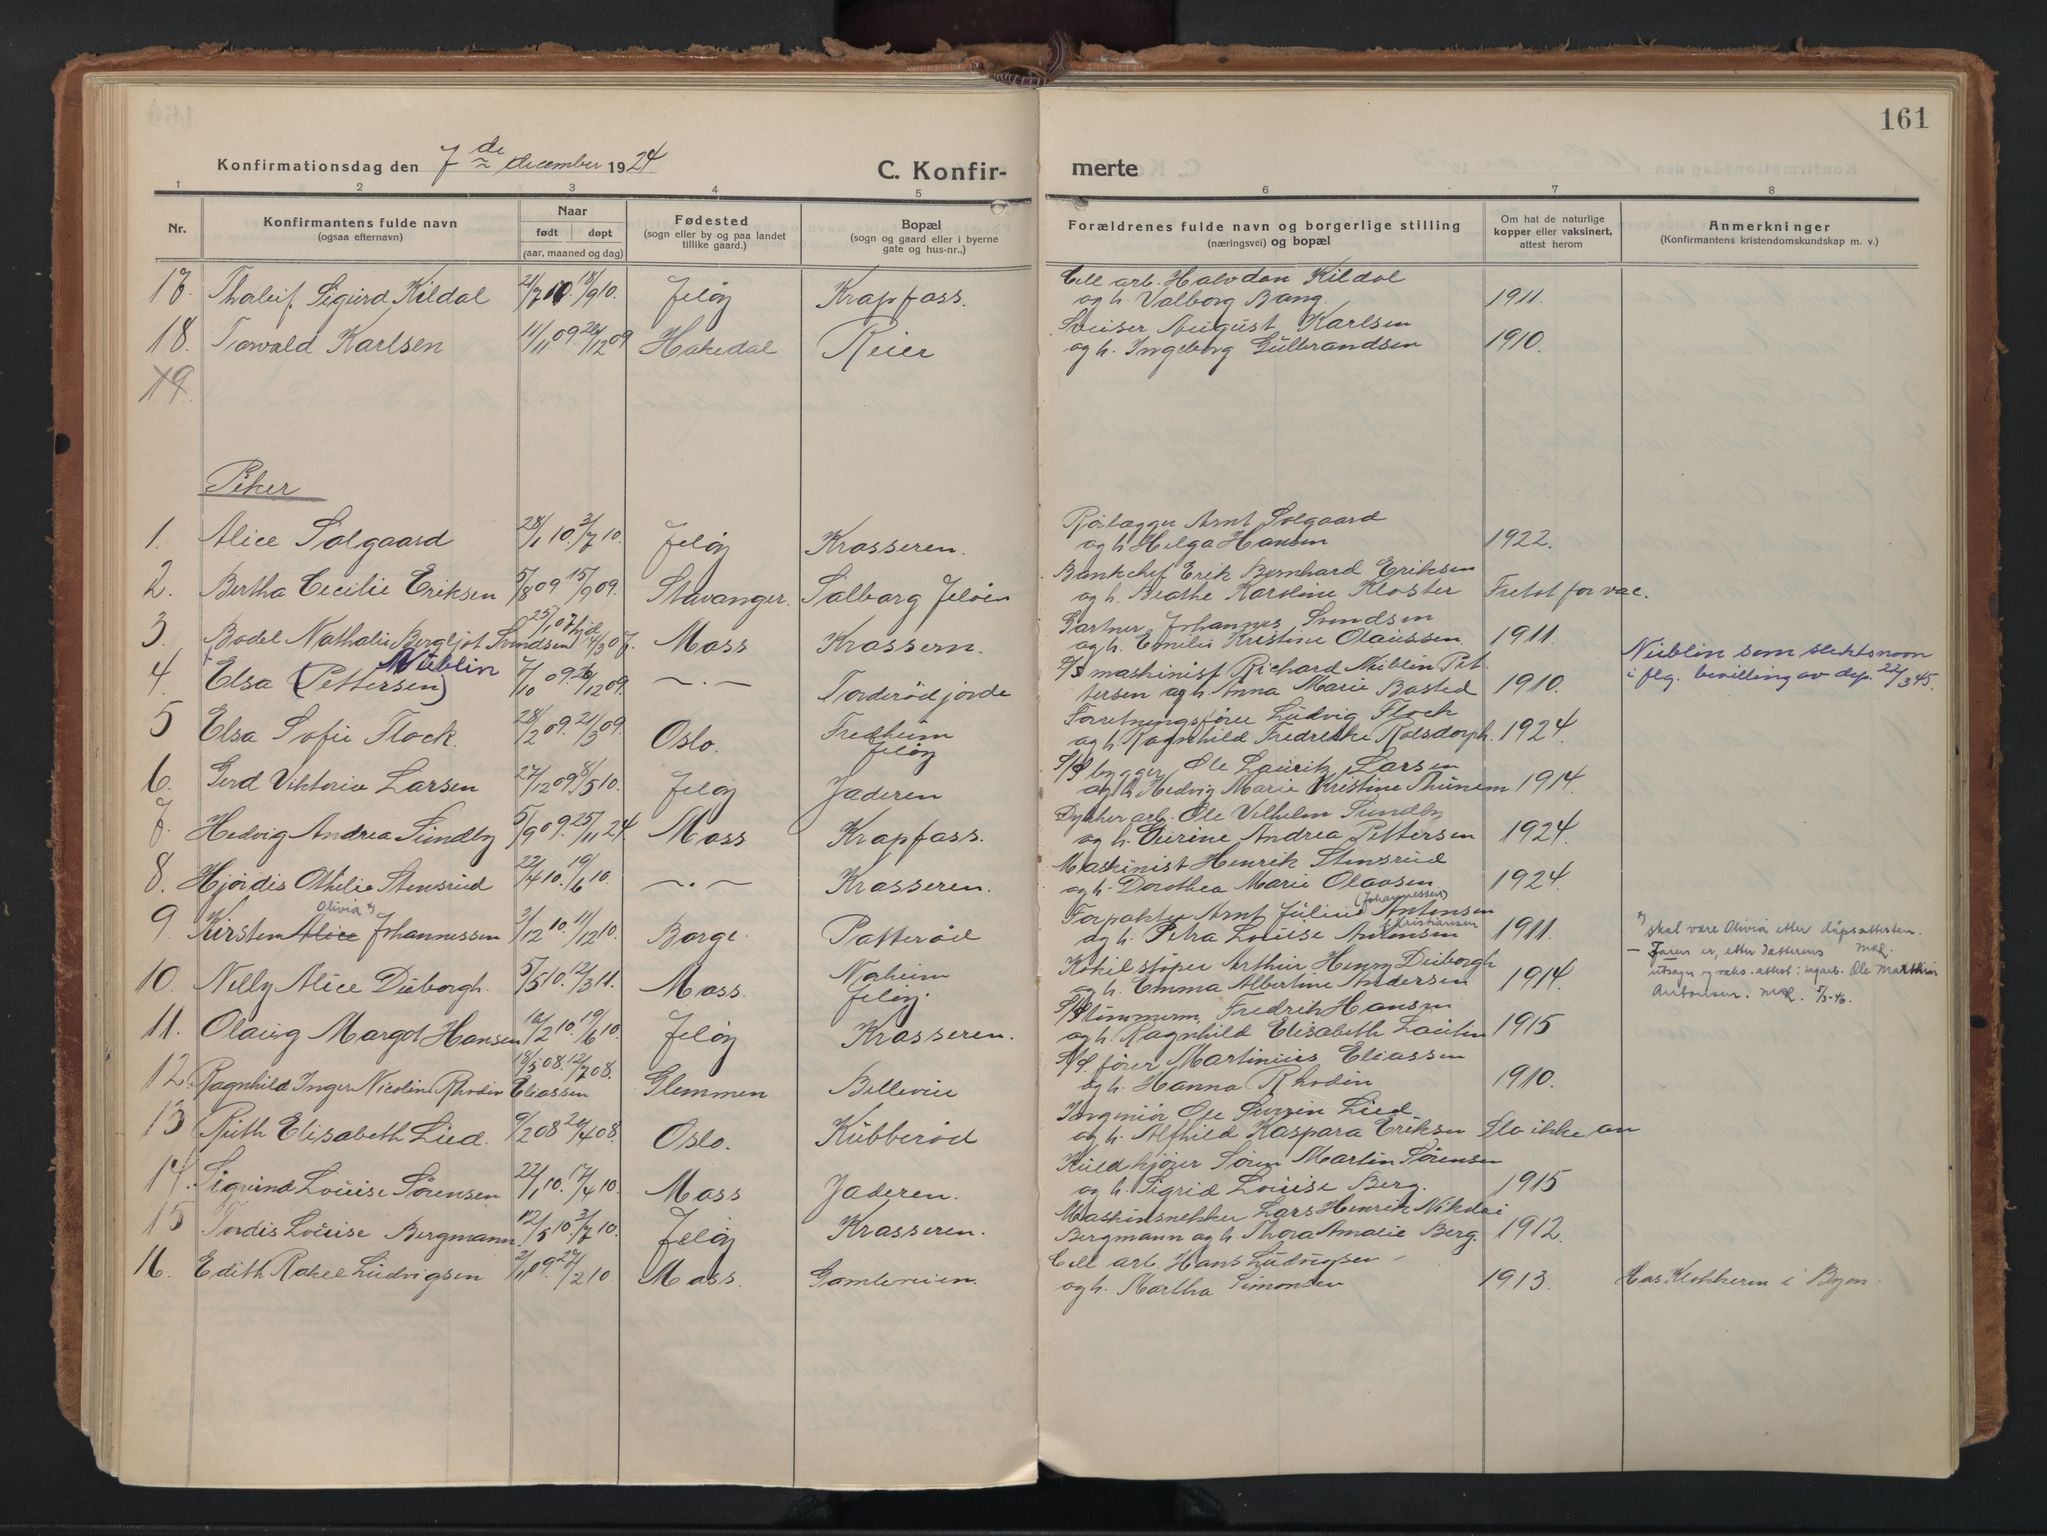 161
Konfirmationsdag den 7de december 1924. C. Konfirmerte
1 2 3 4 5 6 7 8
Nr. Konfirmantens fulde navn (ogsaa efternavn) Naar født døpt (aar, maaned og dag) Fødested (sogn eller by og paa landet tillike gaard.) Bopæl (sogn og gaard eller i byerne gate og hus-nr..) Forældrenes fulde navn og borgerlige stilling (næringsvei) og bopæl Om hat de naturlige kopper eller vaksinert, attest herom Anmerkninger (Konfirmantens kristendomskundskap m. v.)
17. Tholeif Sigurd Kildal 21/7 10. 18/9 10. Jeløy Krapfoss. Cell arb. Halvdan Kildal
og h. Valborg Bang. 1911.
18. Torvald Karlsen 11/11 09. 26/12 09 Hakedal Reier Sveiser August Karlsen
og h. Ingeborg Gulbrandsen 1910.
19.
Piker
1. Alice Solgaard 28/1 10. 3/7 10. Jeløy Krosseren. Rørlægger Arnt Solgaard
og h. Helga Hansen 1922.
2. Bertha Cecilie Eriksen 5/8 09. 15/9 09. Stavanger. Solborg Jeløen Bankchef Erik Bernhard Eriksen
og h. Beathe Karoline Kloster Fritat for vac.
3. Bodel Nathalie Bergljot Svendsen 25/1 07. 4/3 07. Moss Krossern. Gartner Johannes Svendsen
og h. Emilie Kristine Olaussen 1911.
4. Elsa (Pettersen) Nüblin 7/10 09. 26/12 09. —.— Torderødjorde S/S maskinist Richard Nüblin Pet-
tersen og h. Anna Marie Basted 1910. Nüblin som slektsnavn
i flg. bevilling av dep. 22/3 45.
5 Elsa Sofie Flock. 28/2 09. 21/3 09. Oslo. Fredheim Jeløy Forretningsfører Ludvig Flock
og h. Ragnhild Fredrikke Rolsdorph. 1924.
6. Gerd Viktoria Larsen 27/12 09. 8/5 10. Jeløy Jaderen S/S bygger Ole Lauritz Larsen
og h. Hedvig Marie Kristine Thunem 1914.
7. Hedvig Andrea Sundby 5/9 09. 25/11 24. Moss Krapfoss. Dykker arb. Ole Vilhelm Sundby
og h. Eurine Andrea Pettersen 1924.
8. Hjørdis Othilie Stensrud 22/4 10. 19/6 10. —.— Krosseren. Maskinist Henrik Stensrud
og h. Dorothea Marie Olavsen 1924.
9 Kirsten Alice Olivia x) Johannessen 3/12 10. 11/12 10. Borge. Patterød Forpakter Arnt Julius Antonsen (Johannessen)
og h. Petra Louise Antonsen Kristiansen 1911. x) skal være Olivia etter dåpsattesten. MR.
— Faren er, etter datterens
utsagn og vaks. attest: Ole Marthin
Antonsen. MR. 5/3-46.
10. Nelly Alice Duborgh. 5/5 10. 12/3 11. Moss. Noheim Jeløy. Kokilstøper Arthur Henry Duborgh
og h. Emma Albertine Andersen 1914.
11. Olaug Margot Hansen 10/2 10. 19/6 10. Jeløy Krosseren. S/S tømmerm. Fredrik Hansen
og h. Ragnhild Elisabeth Lauten 1915
12. Ragnhild Inger Nicoline Rhodin Eliassen 18/5 08. 12/7 08. Glemmen Bellevue S/S. fører Martinius Eliassen
og h. Hanna Rhodin 1910.
13 Ruth Elisabeth Lied. 9/2 08 20/4 08. Oslo. Kubberød Ingeniør Ole Severin Lied.
og h. Alfhild Kaspara Eriksen Slo ikke an
14. Sigrund Louise Sørensen 22/1 10. 17/4 10. Moss Jaderen. Kuldkjører Søren Martin Sørensen
og h. Sigrid Louise Berg. 1915
15 Tordis Louise Bergmann. 12/5 10. 3/7 10. Jeløy Krosseren. Maskinsnekker Lars Henrik Nikolai
Bergmann og h. Thora Amalie Berg. 1912.
16. Edith Rakel Ludvigsen 2/11 09. 27/2 10. Moss. Gamleveien. Cell arb. Hans Ludvigsen
og h. Martha Simonsen 1913. Hos Klokkeren i Byen.